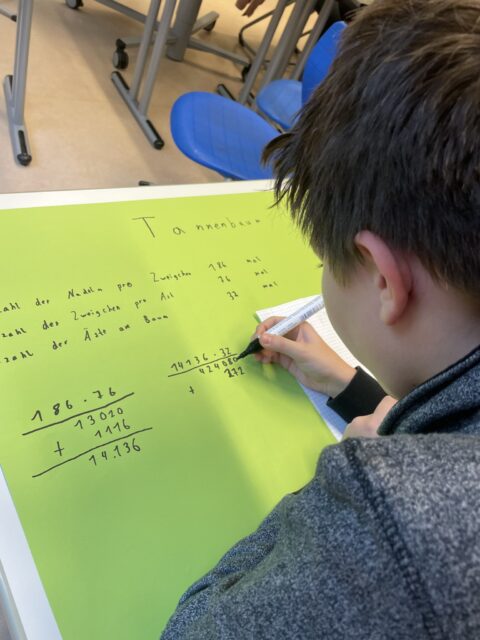 Tannenbaum
zahl der Nadeln pro Zweigchen 186 mal
zahl der Zweigchen pro Ast 76 mal
zahl der Äste am Baum 32 mal
186 · 76
13020
+ 1116
14.136
14136 · 32
424080
+ 272